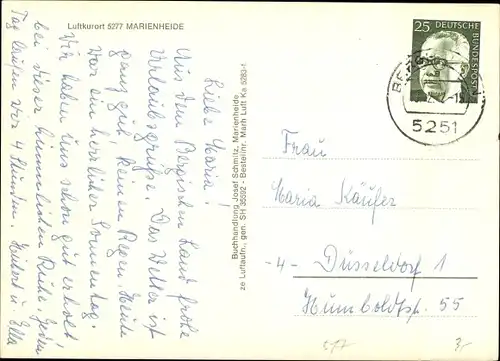 Luftkurort 5277 MARIENHEIDE
Liebe Maria!
Aus dem Bergischen Land frohe
Urlaubsgrüße. Das Wetter ist
ganz gut, keinen Regen. Heute
war ein herrlicher Sonnentag.
Wir haben uns schon gut erholt
bei dieser himmlischen Ruhe. Jeden
Tag laufen wir 4 Stunden.
u. Ella
Buchhandlung Josef Schmitz, Marienheide
ze Luftaufn., gen. SH 35592 - Bestellnr. March Luft Ka 5283-1
25 DEUTSCHE
BUNDESPOST
5251
Frau
Maria Käufer
-4- Düsseldorf 1
Humboldtstr. 55